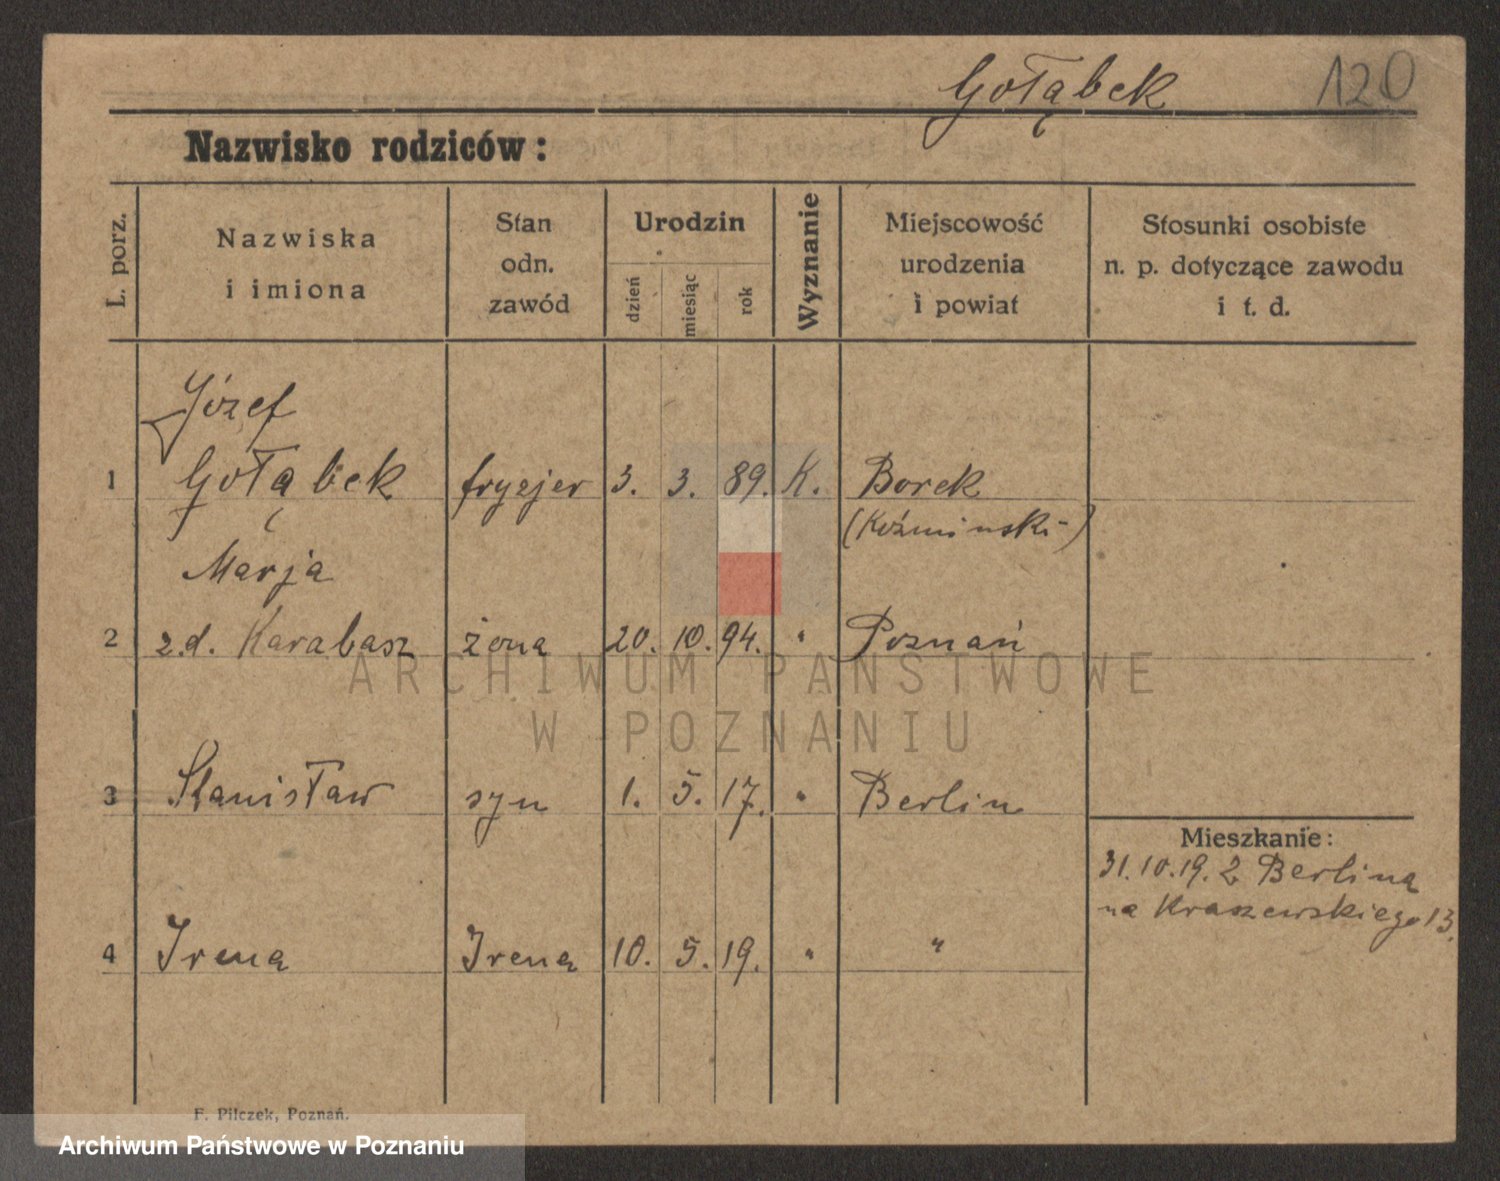 Gołąbek 120
Nazwisko rodziców:
L. porz.
Nazwiska
i imiona
Stan
odn.
zawód
Urodzin
dzień
miesiąc
rok
Wyznanie
Miejscowość
urodzenia
i powiat
Stosunki osobiste
n. p. dotyczące zawodu
i t. d.
Józef
1 Gołąbek fryzjer 3. 3. 89. K. Borek
(Koźminski-)
Marja
2 z.d. Karabasz żona 20. 10. 94. " Poznań
ARCHIWUM PAŃSTWOWE
W POZNANIU
3 Stanisław syn 1. 5. 17. " Berlin
Mieszkanie:
31.10.19. z Berlina
na Kraszewskiego 13.
4 Irena Irena 10. 5. 19. " "
F. Pilczek, Poznań.
Archiwum Państwowe w Poznaniu